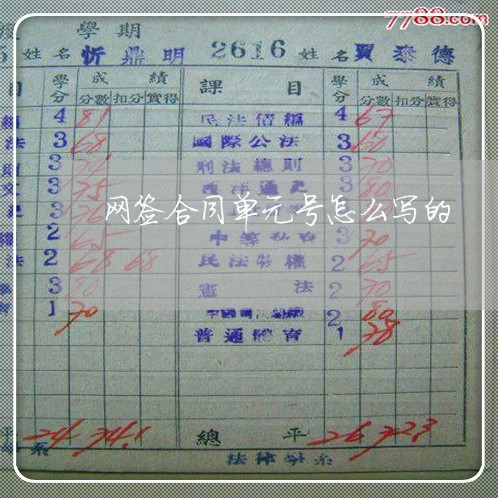 7788.com
學期
姓名 忻鼎明 2616 姓名 賈泰德
目 學分 成績 課目 學分 成績
分數 扣分 實得 分數 扣分 實得
4 81 民法債編 4 67
法 3 68 國際公法 3 60
3 刑法總則 3 70
3 75 3 80
网签合同单元号怎么写的
2 65 3 70
法 2 68 68 民法物權 2 65
3 80 憲法 2 70
1 70 2 80
普通體育 1 78
平 24 74.1 總平 26 72.3
系 法律學系